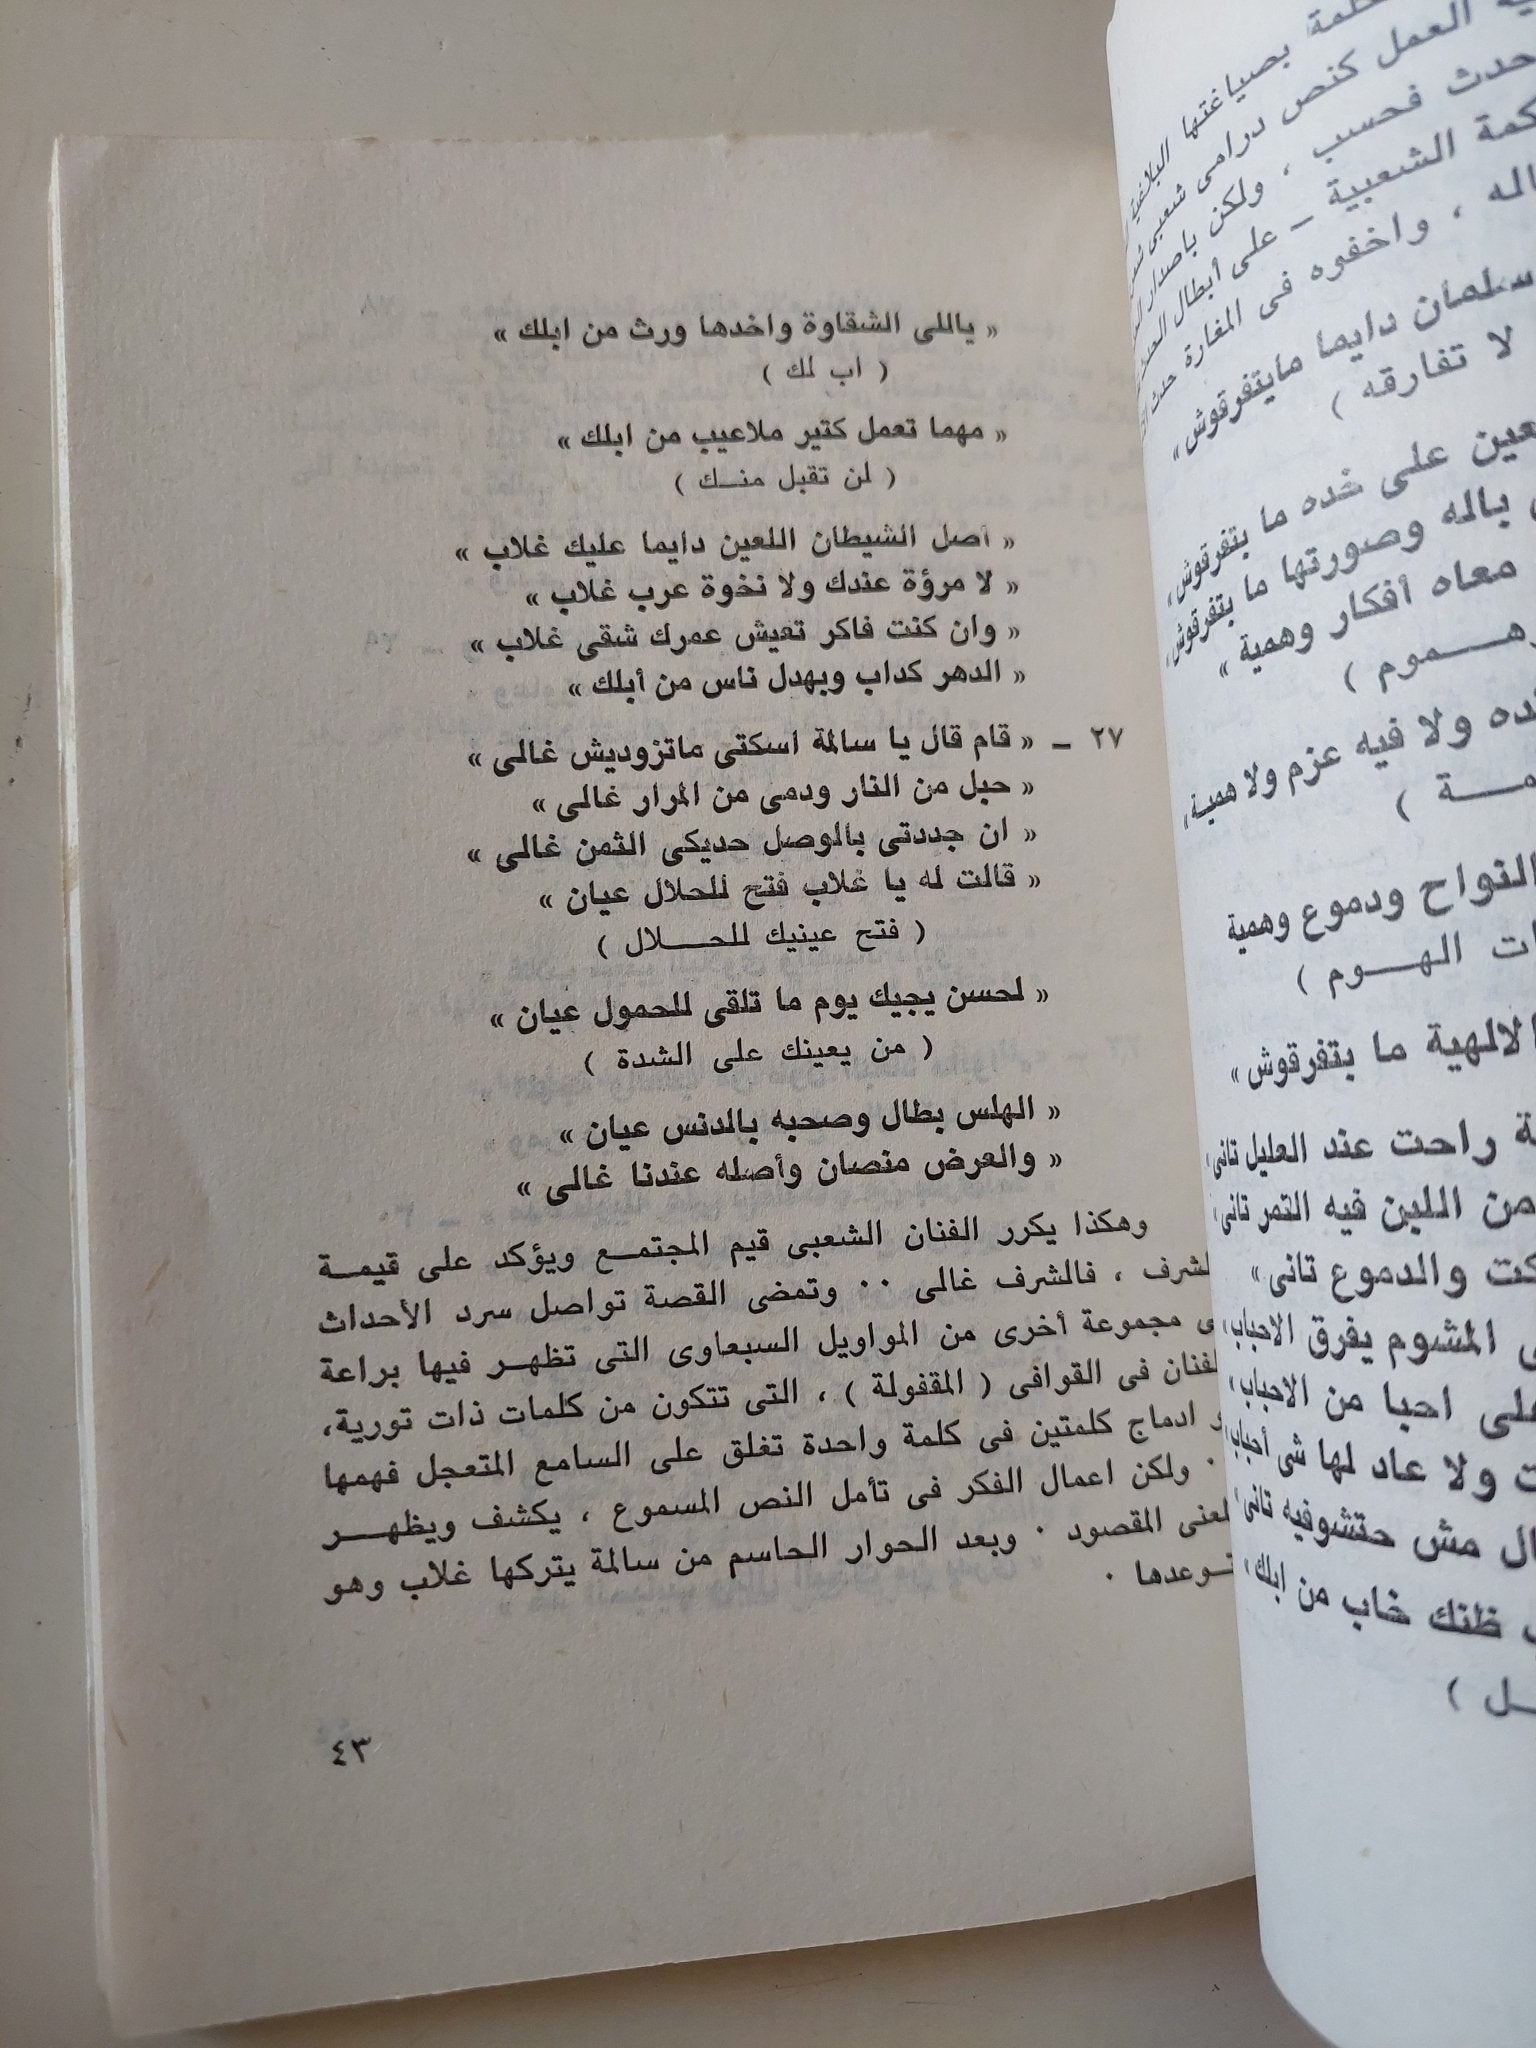 لمة بصياغتها البلاغية
ية العمل كنص درامى شعبى
حدث فحسب ، ولكن باصدار
كمة الشعبية – على أبطال
اله ، واخفوه فى المغارة حدث
سلمان دايما مايتفرقوش »
لا تفارقه )
عين على خده ما بتفرقوش »
باله وصورتها ما بتفرقوش »
معاه أفكار وهمية »
هـــموم )
ده ولا فيه عزم ولا همية »
مـــة )
النواح ودموع وهمية
ات الهـــوم )
الالهية ما بتفرقوش »
ة راحت عند العليل تانى »
من اللبن فيه التمر تانى »
كت والدموع تانى »
المشوم يفرق الاحباب »
على احبا من الاحباب »
ت ولا عاد لها شى أحباب »
ال مش حتشوفيه تانى »
ظنك خاب من ابلك »
ـل )
« ياللى الشقاوة واخدها ورث من ابلك »
( اب لك )
« مهما تعمل كتير ملاعيب من ابلك »
( لن تقبل منــك )
« أصل الشيطان اللعين دايما عليك غلاب »
« لا مرؤة عندك ولا نخوة عرب غلاب »
« وان كنت فاكر تعيش عمرك شقى غلاب »
« الدهر كداب وبهدل ناس من أبلك »
٢٧ – « قام قال يا سالمة اسكتى ماتزوديش غالى »
« حبل من النار ودمى من المرار غالى »
« ان جددتى بالوصل حديكى الثمن غالى »
« قالت له يا غلاب فتح للحلال عيان »
( فتح عينيك للحــــلال )
« لحسن يجيك يوم ما تلقى للحمول عيان »
( من يعينك على الشدة )
« الهلس بطال وصحبه بالدنس عيان »
« والعرض منصان وأصله عندنا غالى »
وهكذا يكرر الفنان الشعبى قيم المجتمــع ويؤكد على قيمــة
لشرف ، فالشرف غالى ٠٠ وتمضى القصة تواصل سرد الأحداث
ى مجموعة أخرى من المواويل السبعاوى التى تظهــر فيها براعة
لفنان فى القوافى ( المقفولة ) ، التى تتكون من كلمات ذات تورية،
و ادماج كلمتين فى كلمة واحدة تغلق على السامع المتعجل فهمها
٠ ولكن اعمال الفكر فى تأمل النص المسموع ، يكشف ويظهــر
لمعنى المقصود ٠ وبعد الحوار الحاسم من سالمة يتركها غلاب وهو
توعدها ٠
٤٣